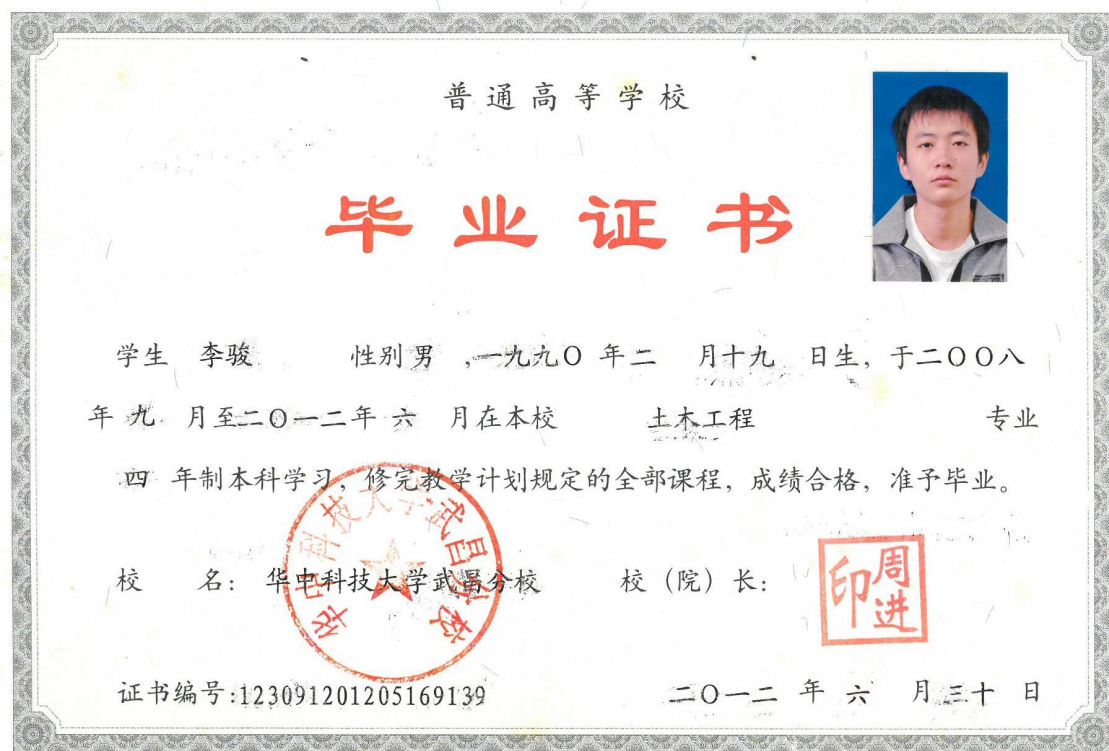 普通高等学校
毕业证书
学生 李骏 性别 男 ,一九九〇 年 二 月 十九 日生，于二〇〇八
年 九 月至二〇一二年 六 月在本校 土木工程 专业
四 年制本科学习，修完教学计划规定的全部课程，成绩合格，准予毕业。
华中科技大学武昌分校
校 名： 华中科技大学武昌分校 校（院）长：
周进印
证书编号:123091201205169139 二〇一二 年 六 月 三十 日